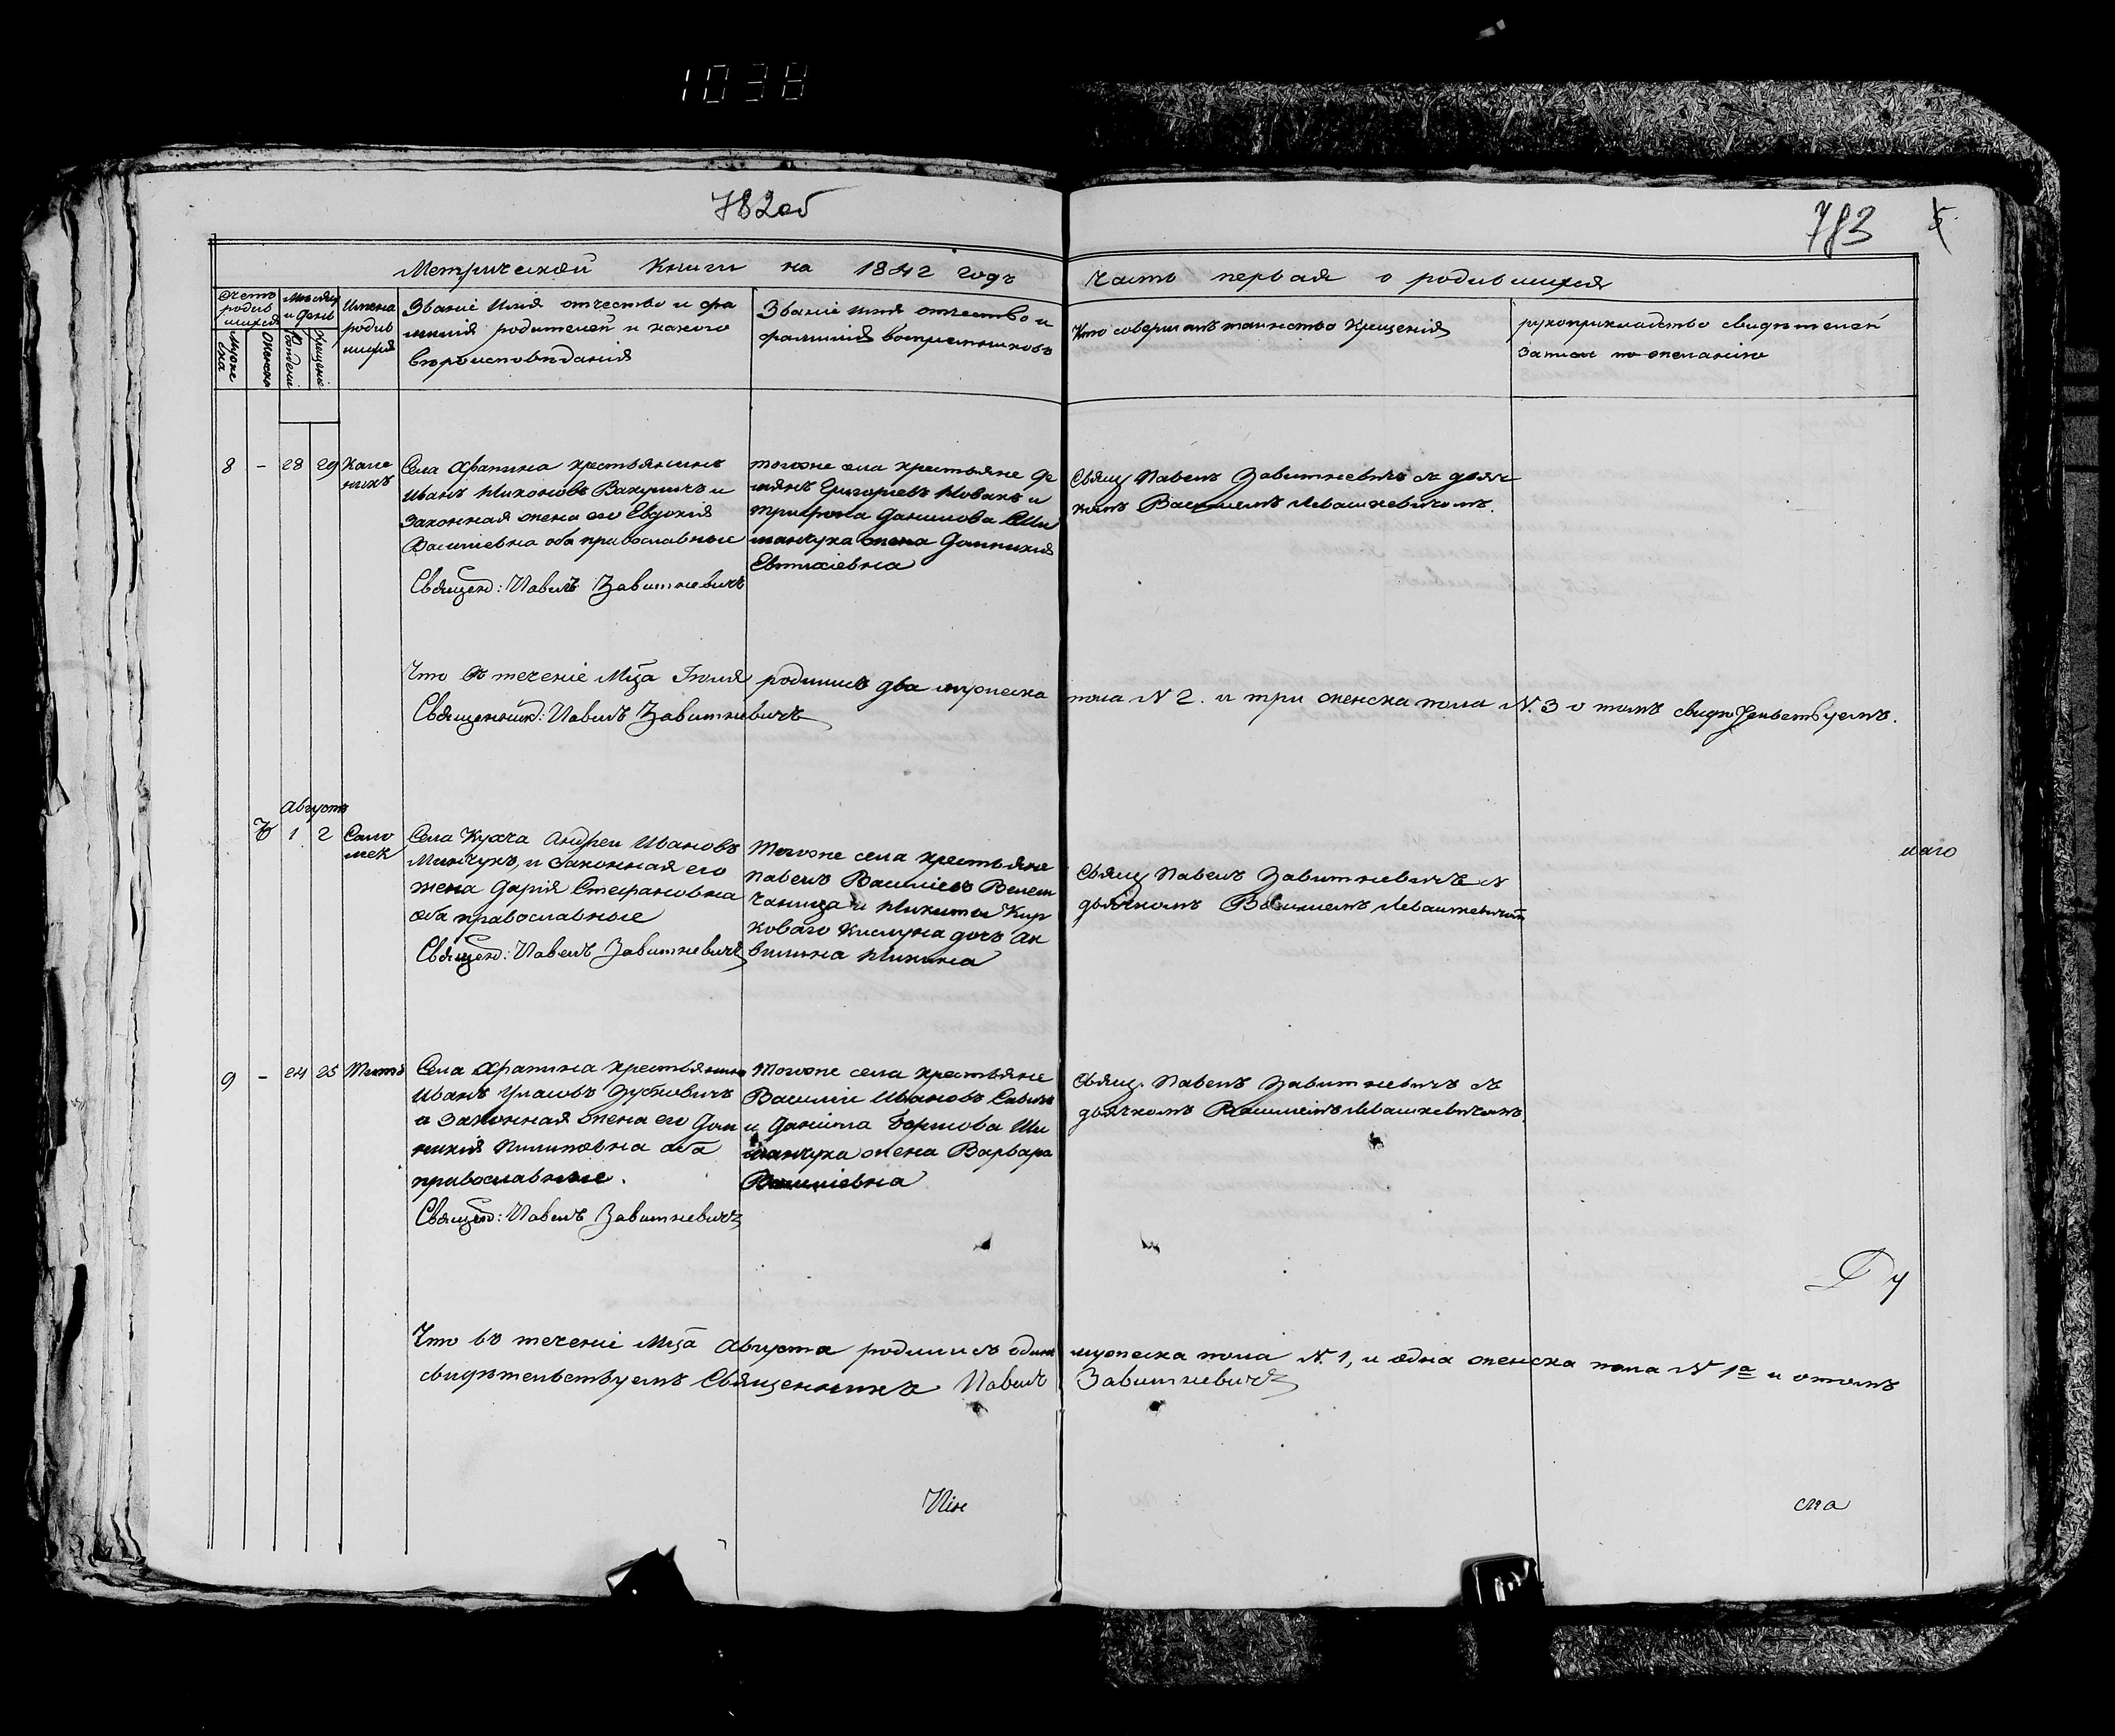 1038
782об
783
5
Метрической Книги на 1842 годъ
Часть первая о родившихся
Счетъ родив шихся
Мужеска
Женска
Мѣсяцъ и день
Рожденія
Крещенія
Имена родив шихся
Званіе Имя отчество и фа
милія родителей и какого
вѣроисповѣданія
Званіе имя отчество и
фамилія воспріемниковъ
Кто совершалъ таинство Крещенія
рукоприкладство свидѣтелей
записи по желанію
8 - 28 29 Кале
никъ
Села Храпина крестьянинъ
Иванъ Никоновъ Вакуличъ и
Законная жена его Евдокія
Василіевна оба православные
Священ: Павелъ Завитневичъ
тогоже села крестьяне Де
міянъ Григоріевъ Новакъ и
трифона Данилова
жена Домникія
Евтихіевна
Свящ Павелъ Завитневичъ съ дьяч
комъ Василіемъ Левашкевичомъ.
Что въ теченіе Мца Іюля родились два мужеска пола N 2. и три женска пола N. 3 о томъ свидѣтельствуемъ.
Священникъ: Павелъ Завитневичъ
Августъ
1 2 Соло
мея
Села Кухча Андрей Ивановъ
Минчукъ, и Законная его
жена Дарія Стефановна
оба православные
Священ: Павелъ Завитневичъ
Тогоже села крестьяне
Павелъ Василіевъ Велем
чаница и Никиты
дочь Ак
вилина
Свящ Павелъ Завитневичъ съ
дьячкомъ Василіемъ Левашкевичомъ
9 - 24 25 Титъ
Села Храпина крестьянинъ
Иванъ Уласовъ Зубковичъ
и Законная жена его Дом
никія Пилиповна оба
православные.
Священ: Павелъ Завитневичъ
Тогоже села крестьяне
Василій Ивановъ Савичъ
и Даніила Борисова
жена Варвара
Василіевна
Свящ. Павелъ Завитневичъ съ
дьячкомъ Василіемъ Левашкевичомъ
Ду
Что въ теченіе Мца Августа родились одинъ мужеска пола N. 1, и одна женска пола N 1а и отомъ
свидѣтельствуемъ Священникъ Павелъ Завитневичъ
Пін
ска